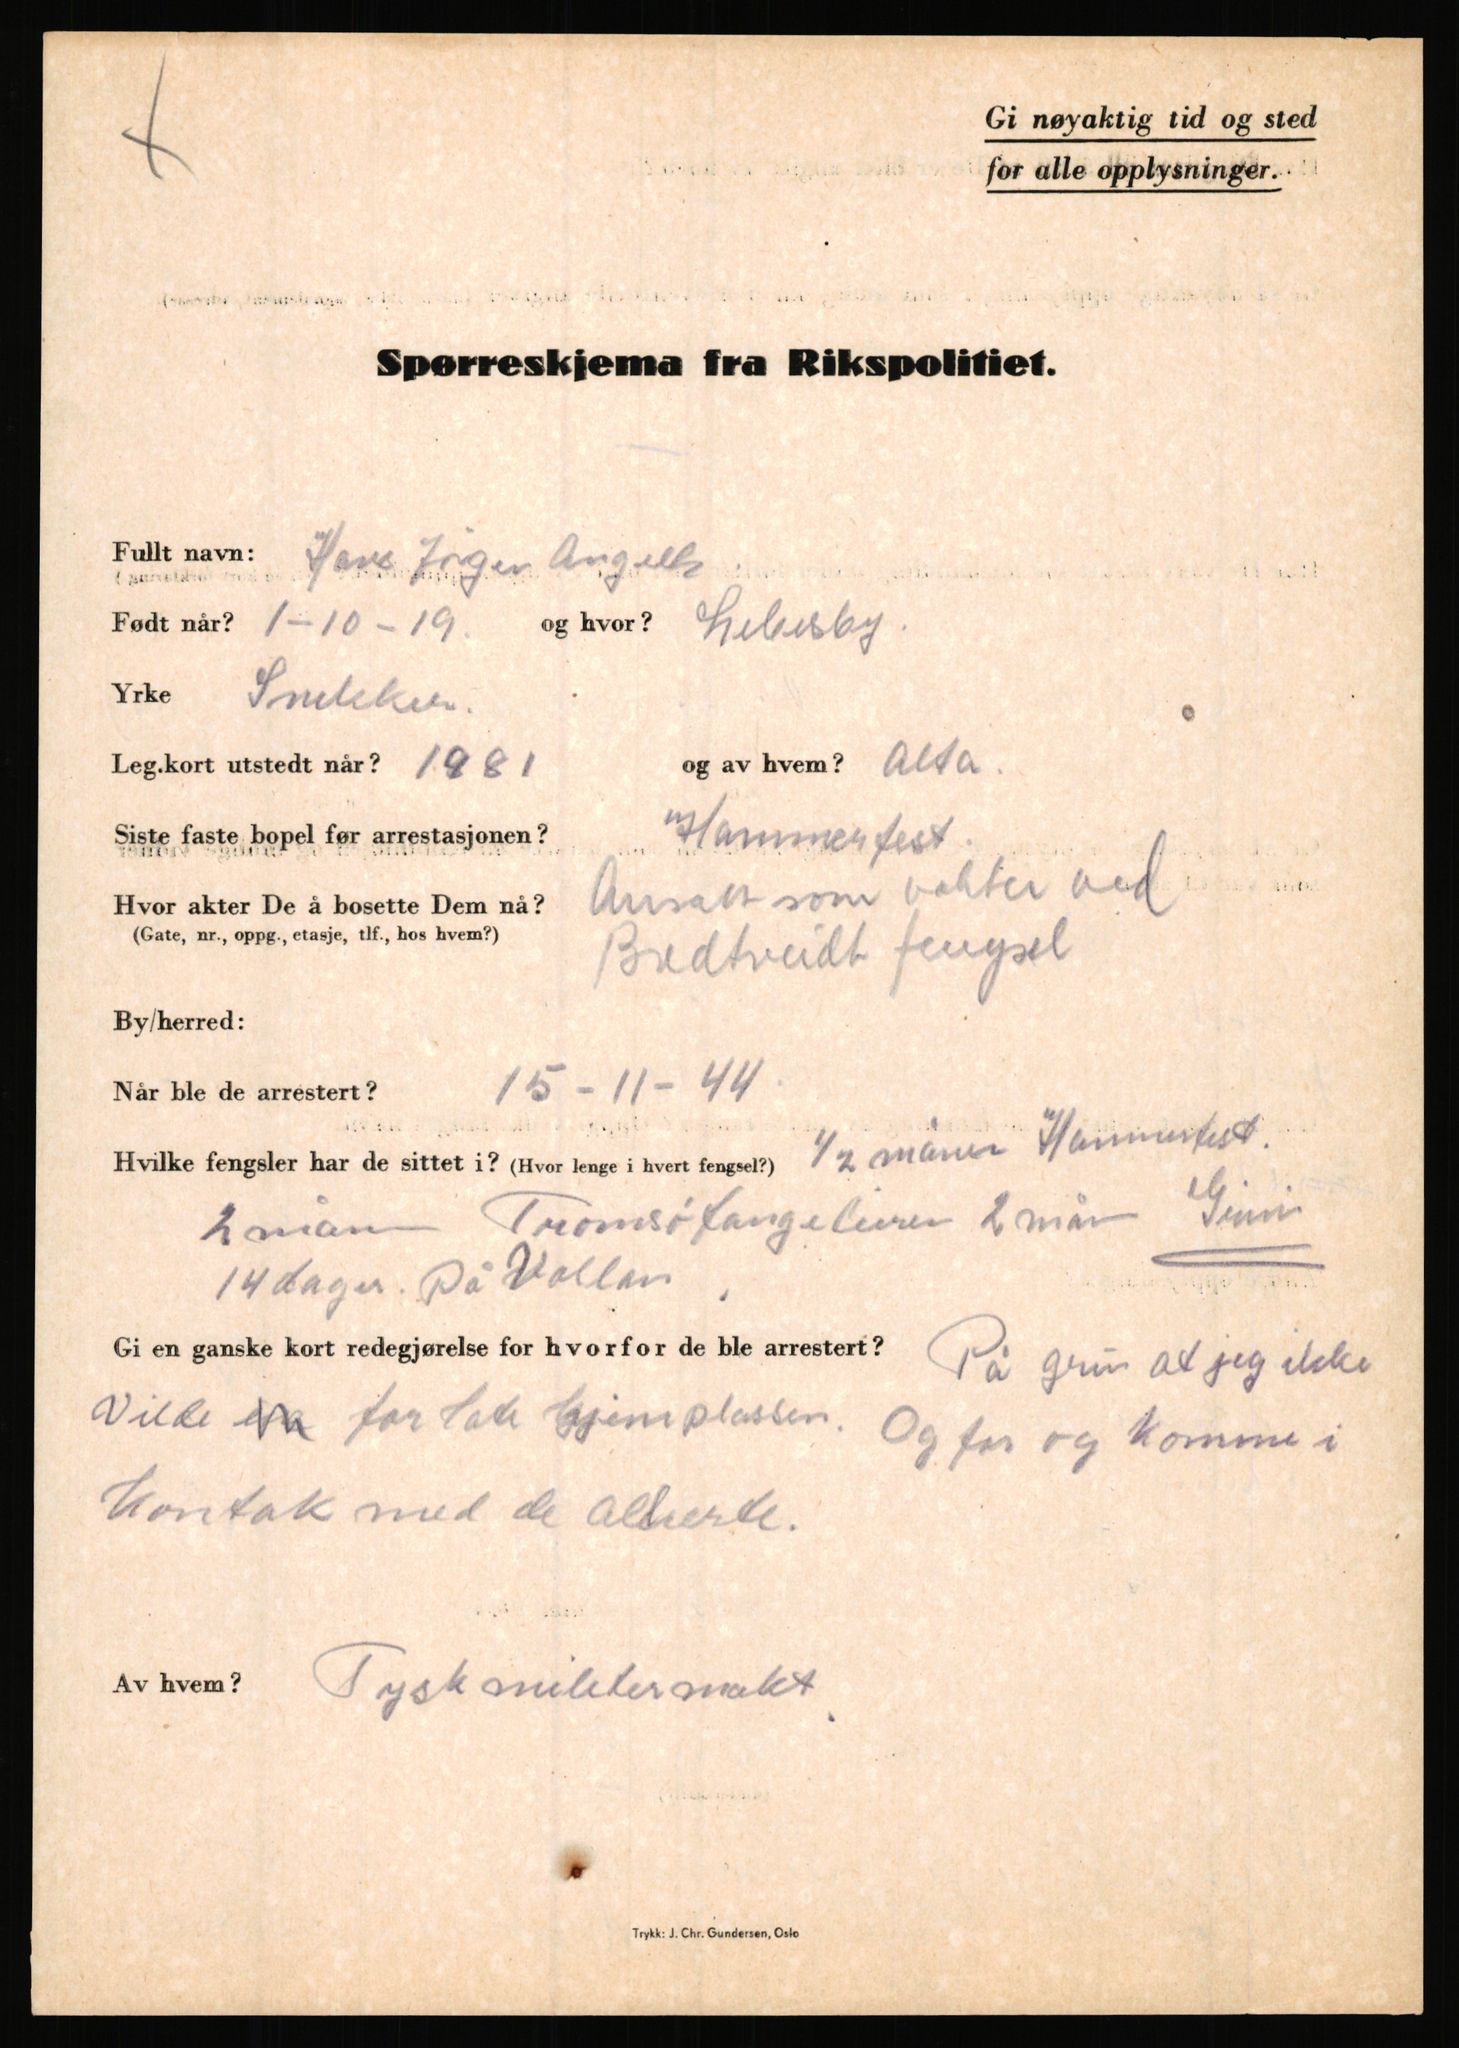 Gi nøyaktig tid og sted
for alle opplysninger.
Spørreskjema fra Rikspolitiet.
Fullt navn: Hans Jörgen Angell
Født når? 1-10-19. og hvor? Lebesby.
Yrke Snekker.
Leg.kort utstedt når? 1981 og av hvem? Alta.
Siste faste bopel før arrestasjonen? Hammerfest.
Hvor akter De å bosette Dem nå? Ansatt som vakter ved
(Gate, nr., oppg., etasje, tlf., hos hvem?) Bredtveidt fengsel
By/herred:
Når ble de arrestert? 15-11-44.
Hvilke fengsler har de sittet i? (Hvor lenge i hvert fengsel?) 1/2 måner Hammerfest.
2 mån Tromsö fangeleiren 2 mån Grini
14 dager. på Vollan.
Gi en ganske kort redegjørelse for hvorfor de ble arrestert? På grun at jeg ikke
Vilde forlate hjemplassen. Og for og komme i
kontak med de allierte.
Av hvem? Tysk militermakt.
Trykk: J. Chr. Gundersen, Oslo